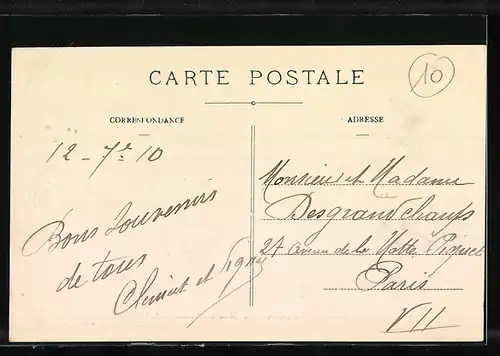 10
CARTE POSTALE
CORRESPONDANCE
ADRESSE
12 - 7re 10
Bons Souvenirs
de tous
Clément et
Monsieur et Madame
Desgrandchamps
27 avenue de la Motte Piquet
Paris
VII